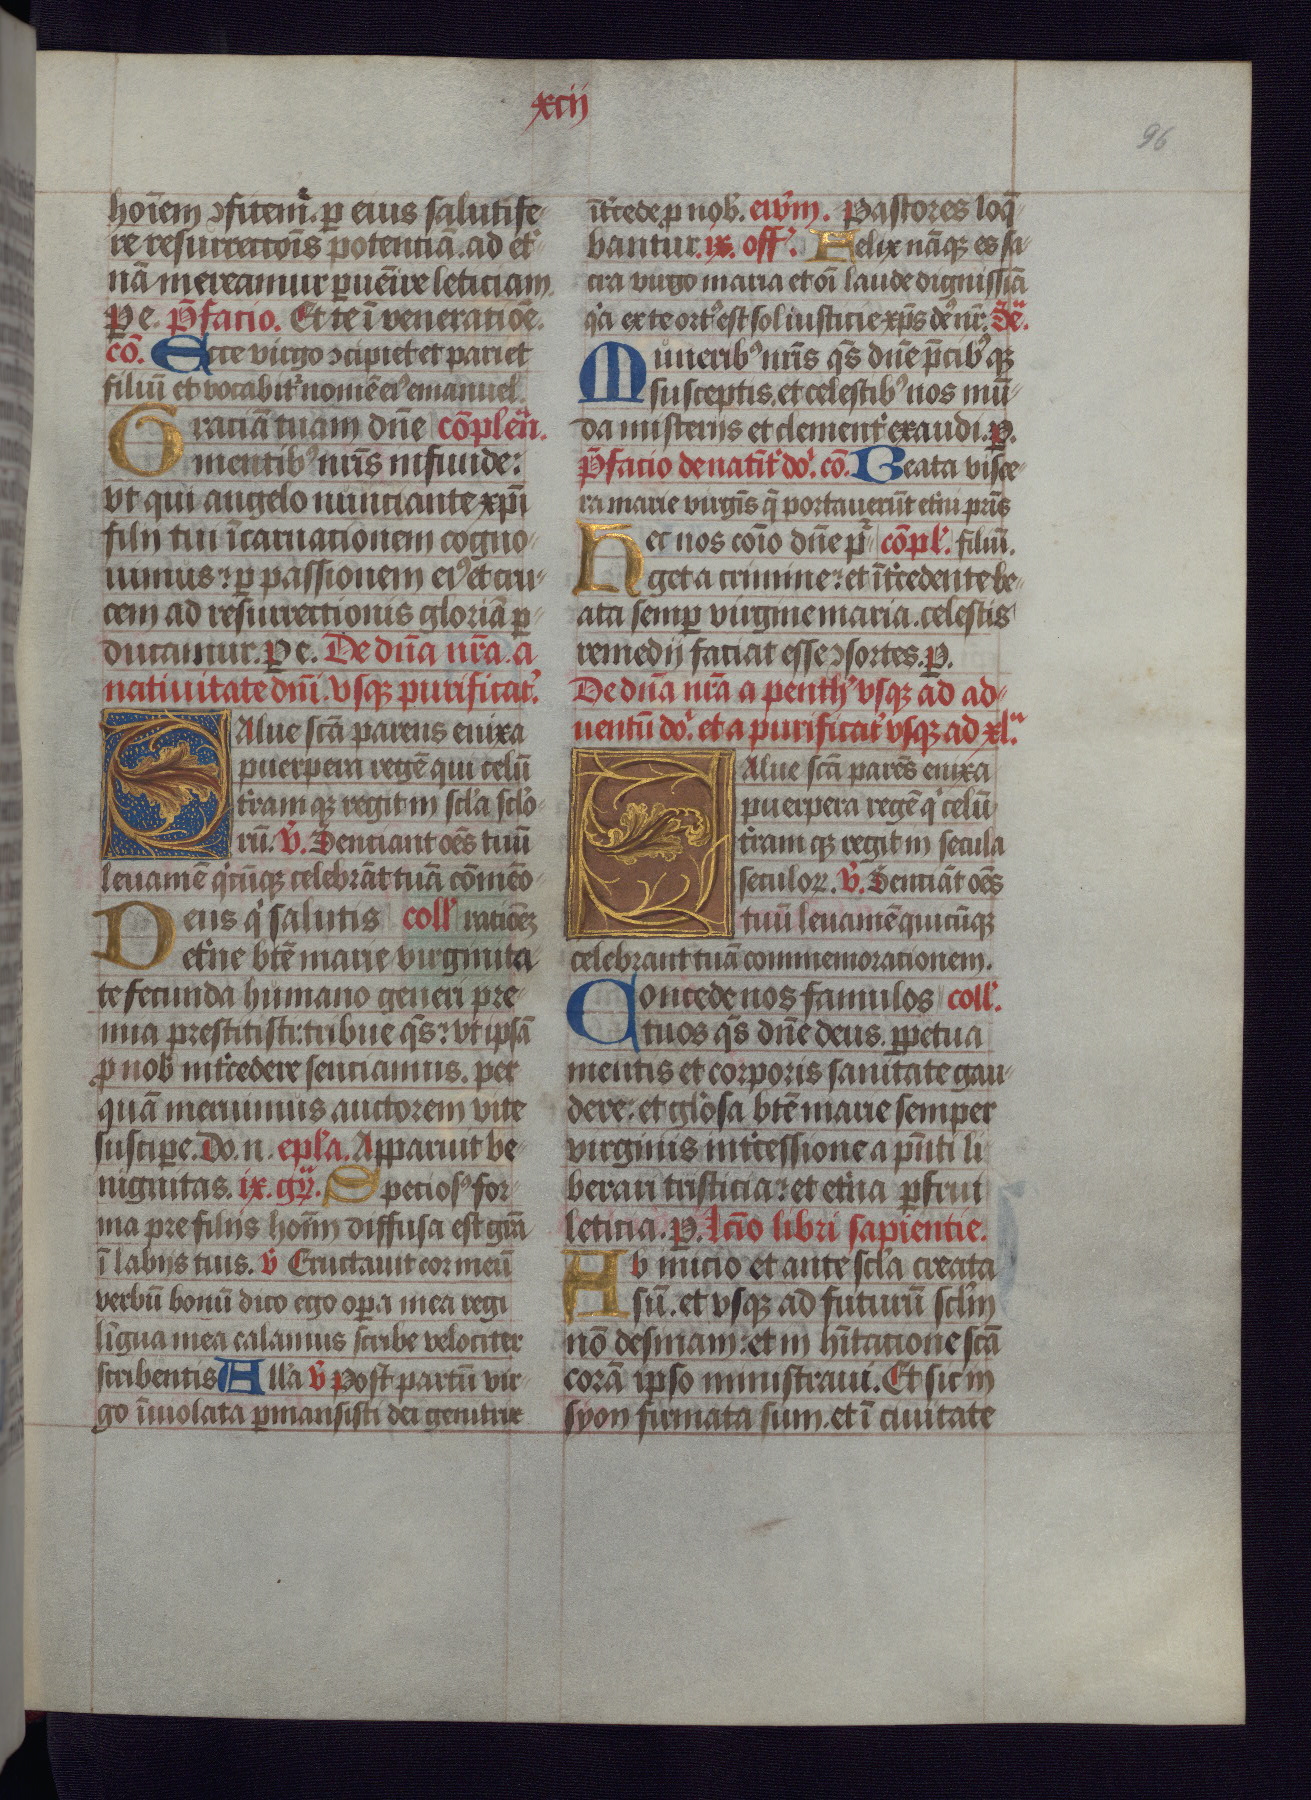 xcii
96
hoīem ↄfitem̄. ꝑ eius salutife
re resurrectōis potenciā. ad et̾
nā mereamur ꝑuēire leticiam
Pe. P̄facio. Et te ī veneratiōe.
cō. Ecce virgo ↄcipiet et pariet
filiū et vocabit᷑ nomē ei⁹ emanuel.
Graciā tuam dn̄e cōplen̄.
mentib⁹ nr̄is infunde:
vt qui angelo nunciante xp̄i
filij tui īcarnacionem cogno
uimus: ꝑ passionem ei⁹ et cru
cem ad resurrectionis gloriā ꝑ
ducamur. Pe. De dn̄a nr̄a. a
natiuitate dn̄i. vsqꝫ purificat̾.
Salue sc̄a parens enixa
puerpera regē qui celū
t̾ram qꝫ regit in scl̄a sclo
rū. v̄. Senciant oēs tuū
leuamē q̇cūqꝫ celebrāt tuā cōmeō
Deus q̇ salutis coll̾ racionēꝫ
et̾ne btē marie virginita
te fecunda humano generi pre
mia prestitisti: tribue q̄s: vt ipsā
ꝓ nob̾ int̾cedere senciamus. per
quā meruimus auctorem vite
suscipe. Do. n. epl̄a. Apparuit be
nignitas. ix. gr̄. Specios⁹ for
ma pre filijs hoīm diffusa est gr̄a
ī labijs tuis. v̄ Eructauit cor meū
verbū bonū dico ego oꝑa mea regi
līgua mea calamus scribe velociter
scribentis Alla v̄ Post partū vir
go īuiolata ꝑmansisti dei genitrix
īt̾cede ꝓ nob̾. ew̄m. Pastores loq̄
bantur. ix. off̾. Felix nāqꝫ es sa
cra virgo maria et oī laude dignissīa
q̇a ex te ort⁹ est sol iusticie xp̄s de⁹ nr̄. sē.
Munerib⁹ nr̄is q̄s dn̄e p̄cib⁹qꝫ
susceptis. et celestib⁹ nos mū
da misterijs et clement̾ exaudi. P.
P̄facio de natīt̾ do̾. cō. Beata visce
ra marie virgīs q̄ portauerūt et̾ni pr̄is
Hec nos cōio dn̄e pur̄ cōpl̾. filiū.
get a crimine: et īt̾cedente be
ata semꝑ virgine maria. celestis
remedij faciat esse ↄsortes. P.
De dn̄a nr̄a a penth̾ vsqꝫ ad ad
uentū do̾. et a purificat̾ vsqꝫ ad xl̾.
Salue sc̄a parēs enixa
puerpera regē q̇ celū
t̾ram qꝫ regit in secula
seculoꝝ. v̄. Senciāt oēs
tuū leuamē quicūqꝫ
celebrant tuā commemorationem.
Concede nos famulos coll̾.
tuos q̄s dn̄e deus. ꝑpetua
mentis et corporis sanitate gau
dere: et gl̾osa btē marie semper
virginis int̾cessione a p̄nti li
berari tristicia: et et̾na ꝑfrui
leticia. P. Lc̄io libri sapientie.
Ab inicio et ante scl̄a creata
sū. et vsqꝫ ad futurū scl̄m
nō desinam: et in hītacione scā
corā ipso ministraui. Et sic in
syon firmata sum. et ī ciuitate